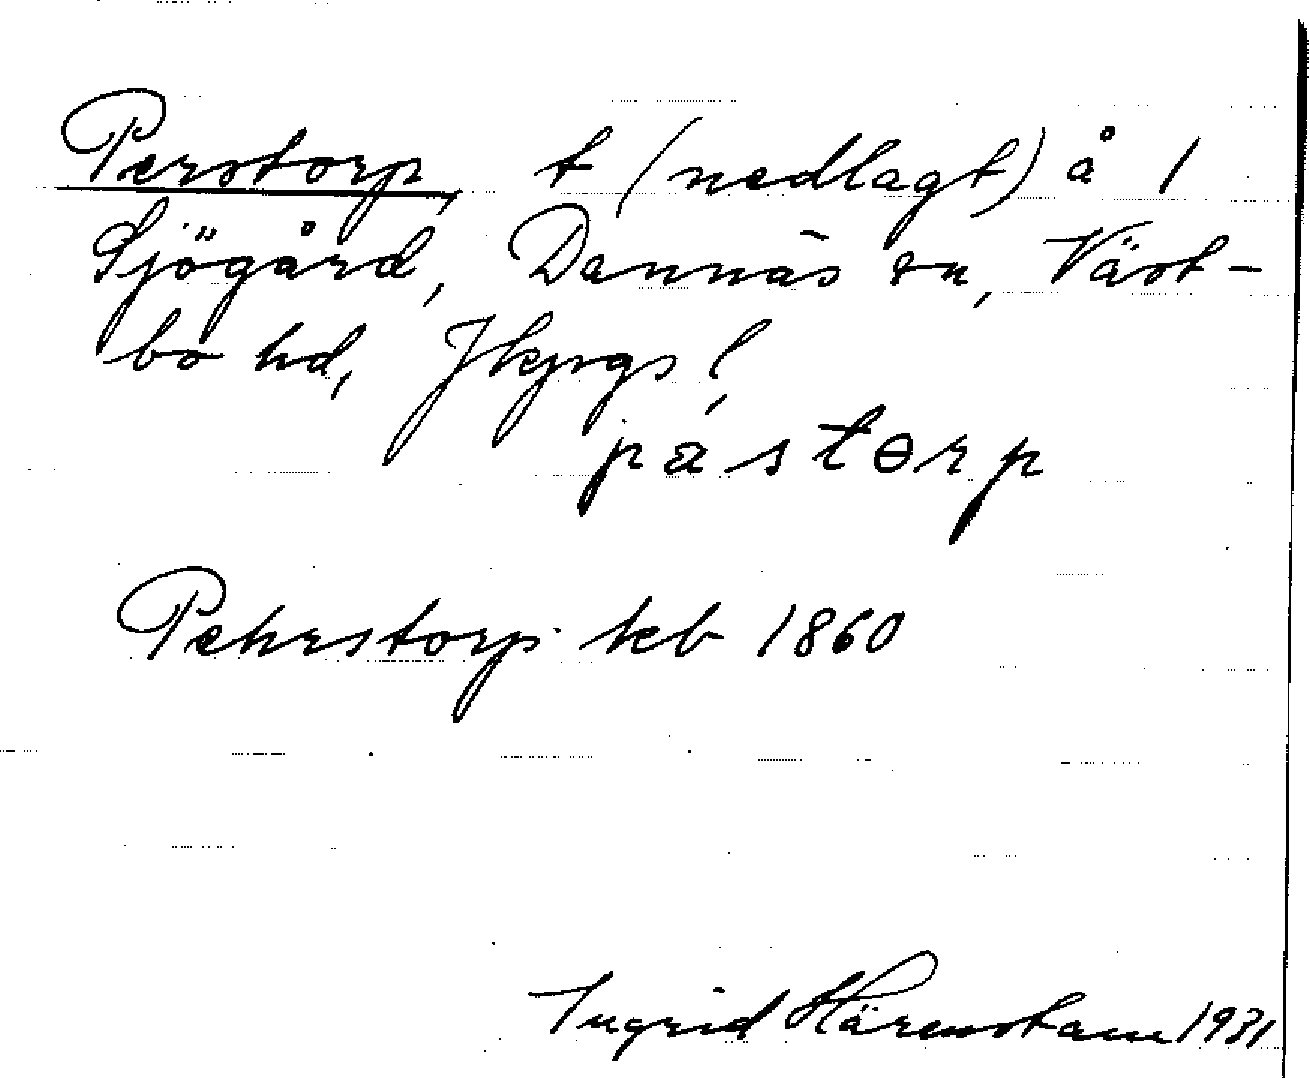 Perstorp, t (nedlagt) å 1
Sjögård, Dannäs sn, Väst-
bo hd, Jkpgs l,
pástɵrp
Pehrstorp keb 1860
Ingrid Härenstam 1931